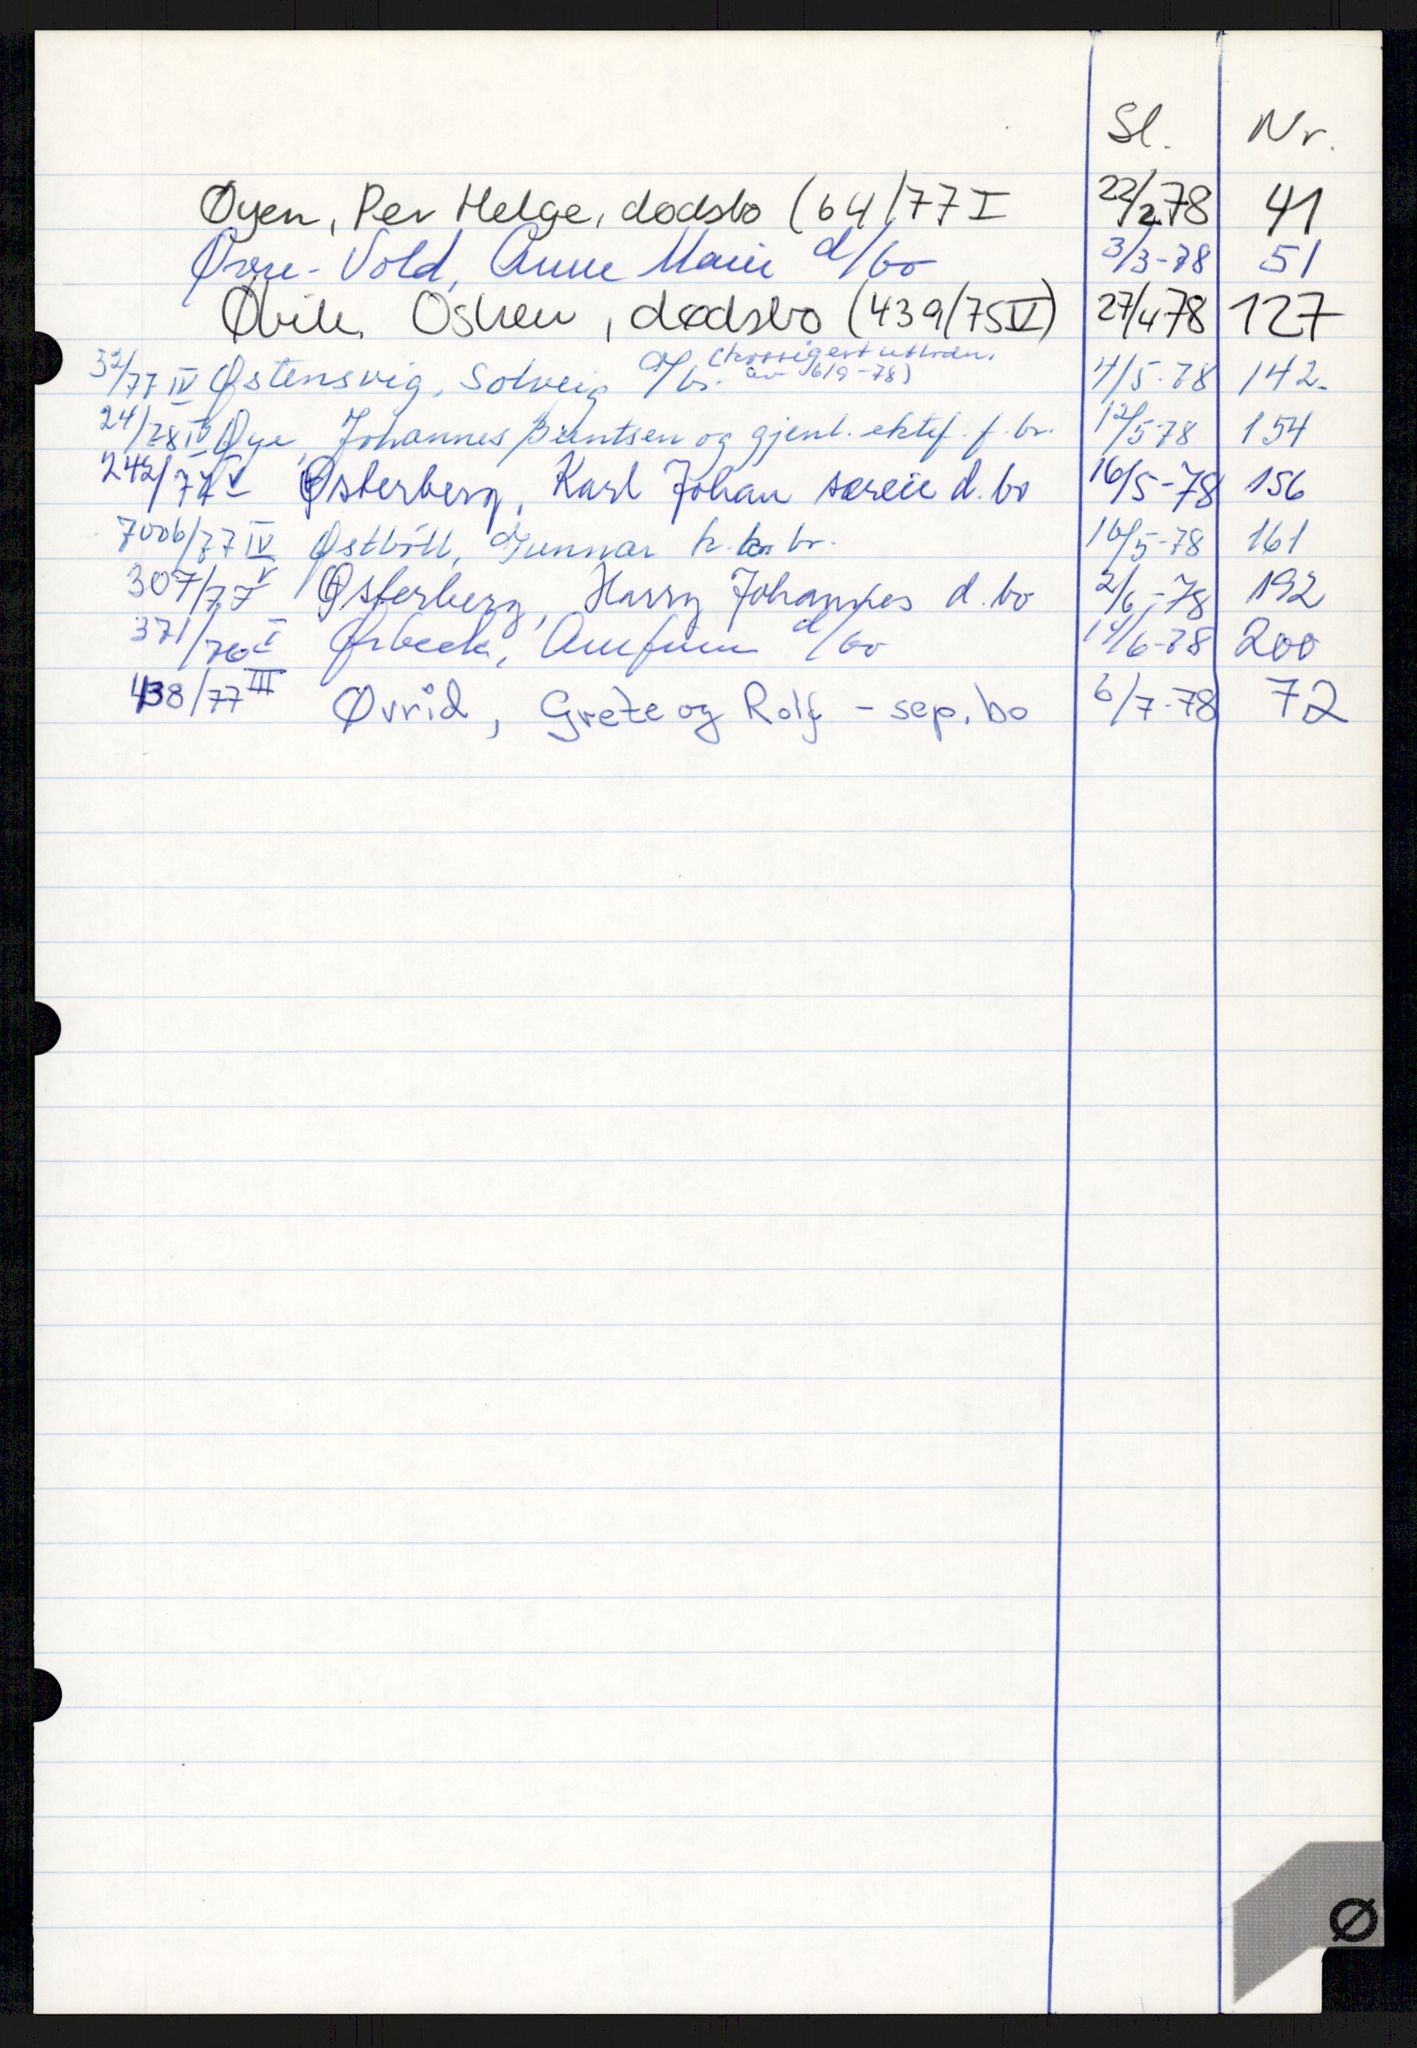 Sl. Nr.
Øyen, Per Helge, dødsbo (64/77 I 22/2 78 41
Øvre-Vold, Anne Marie d/bo 3/3-78 51
Øvik, Oskar, dødsbo (439/75 V) 27/4 78 127
(korrigert utlodn.
32/77 IV Østensvig, Solveig d/bo. av 6/9-78) 4/5-78 142.
24/78 IV Øye, Johannes Berntsen og gjenl. ektef. f. bo. 12/5-78 154
242/77 V Østerberg, Karl Johan særeie d. bo 16/5-78 156
7006/77 IV Gunnar k. bo. 16/5-78 161
307/77 V Østerberg, Harry Johannes d. bo 2/6-78 192
371/76 I Ørbeck, d/bo 14/6-78 200
438/77 III Øvrid, Grete og Rolf - sep. bo 6/7-78 72
Ø